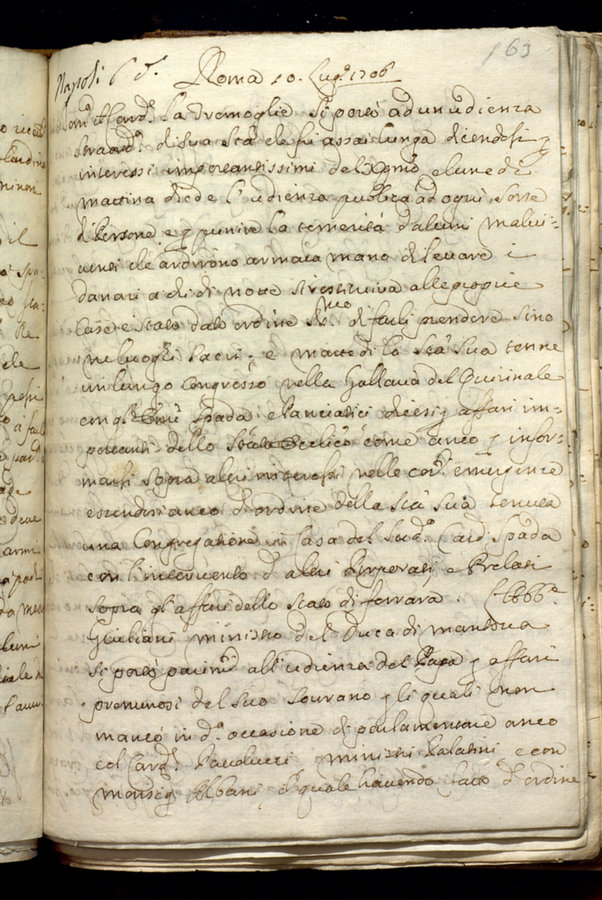 163
Napoli 6 d.
Roma 10. Lug.o 1706
Card.l La Tremoglie si portò ad un udienza
di sua Stà che fu assai lunga dicendosi p
interessi importantissimi del e lunedì
mattina diede l'udienza publica ad ogni sorte
di Persone e p punire la temerità d'alcuni malvi-
venti che ardirono armata mano di levare i
danari a chi di notte si restituiva alle proprie
Case è stato dato ordine di farli prendere sino
ne luoghi sacri; e martedì la Stà Sua tenne
un lungo Congresso nella Gallaria del Quirinale
con gl' Emi Spada e Panciatici diversi affari im-
portanti dello Stato Ecclico come anco p infor-
marsi sopra altri interessi nelle corr.i emergenze
essendosi anco d'ordine della Stà Sua tenuta
una Congregatione in Casa del Sud.o Card. Spada
con l'intervento d'altri Porporati e Prelati
sopra gl'affari dello Stato di ferrara. L'Abb.e
Giuliani ministro del Duca di Mantova
si portò parim.ti all'udienza del Papa p affari
premurosi del suo Sovrano p li quali non
mancò in d.a occasione di parlamentare anco
col Card.l Paulucci ministri Palatini e con
monsig.r Albani, il quale havendo fatto d'ordine